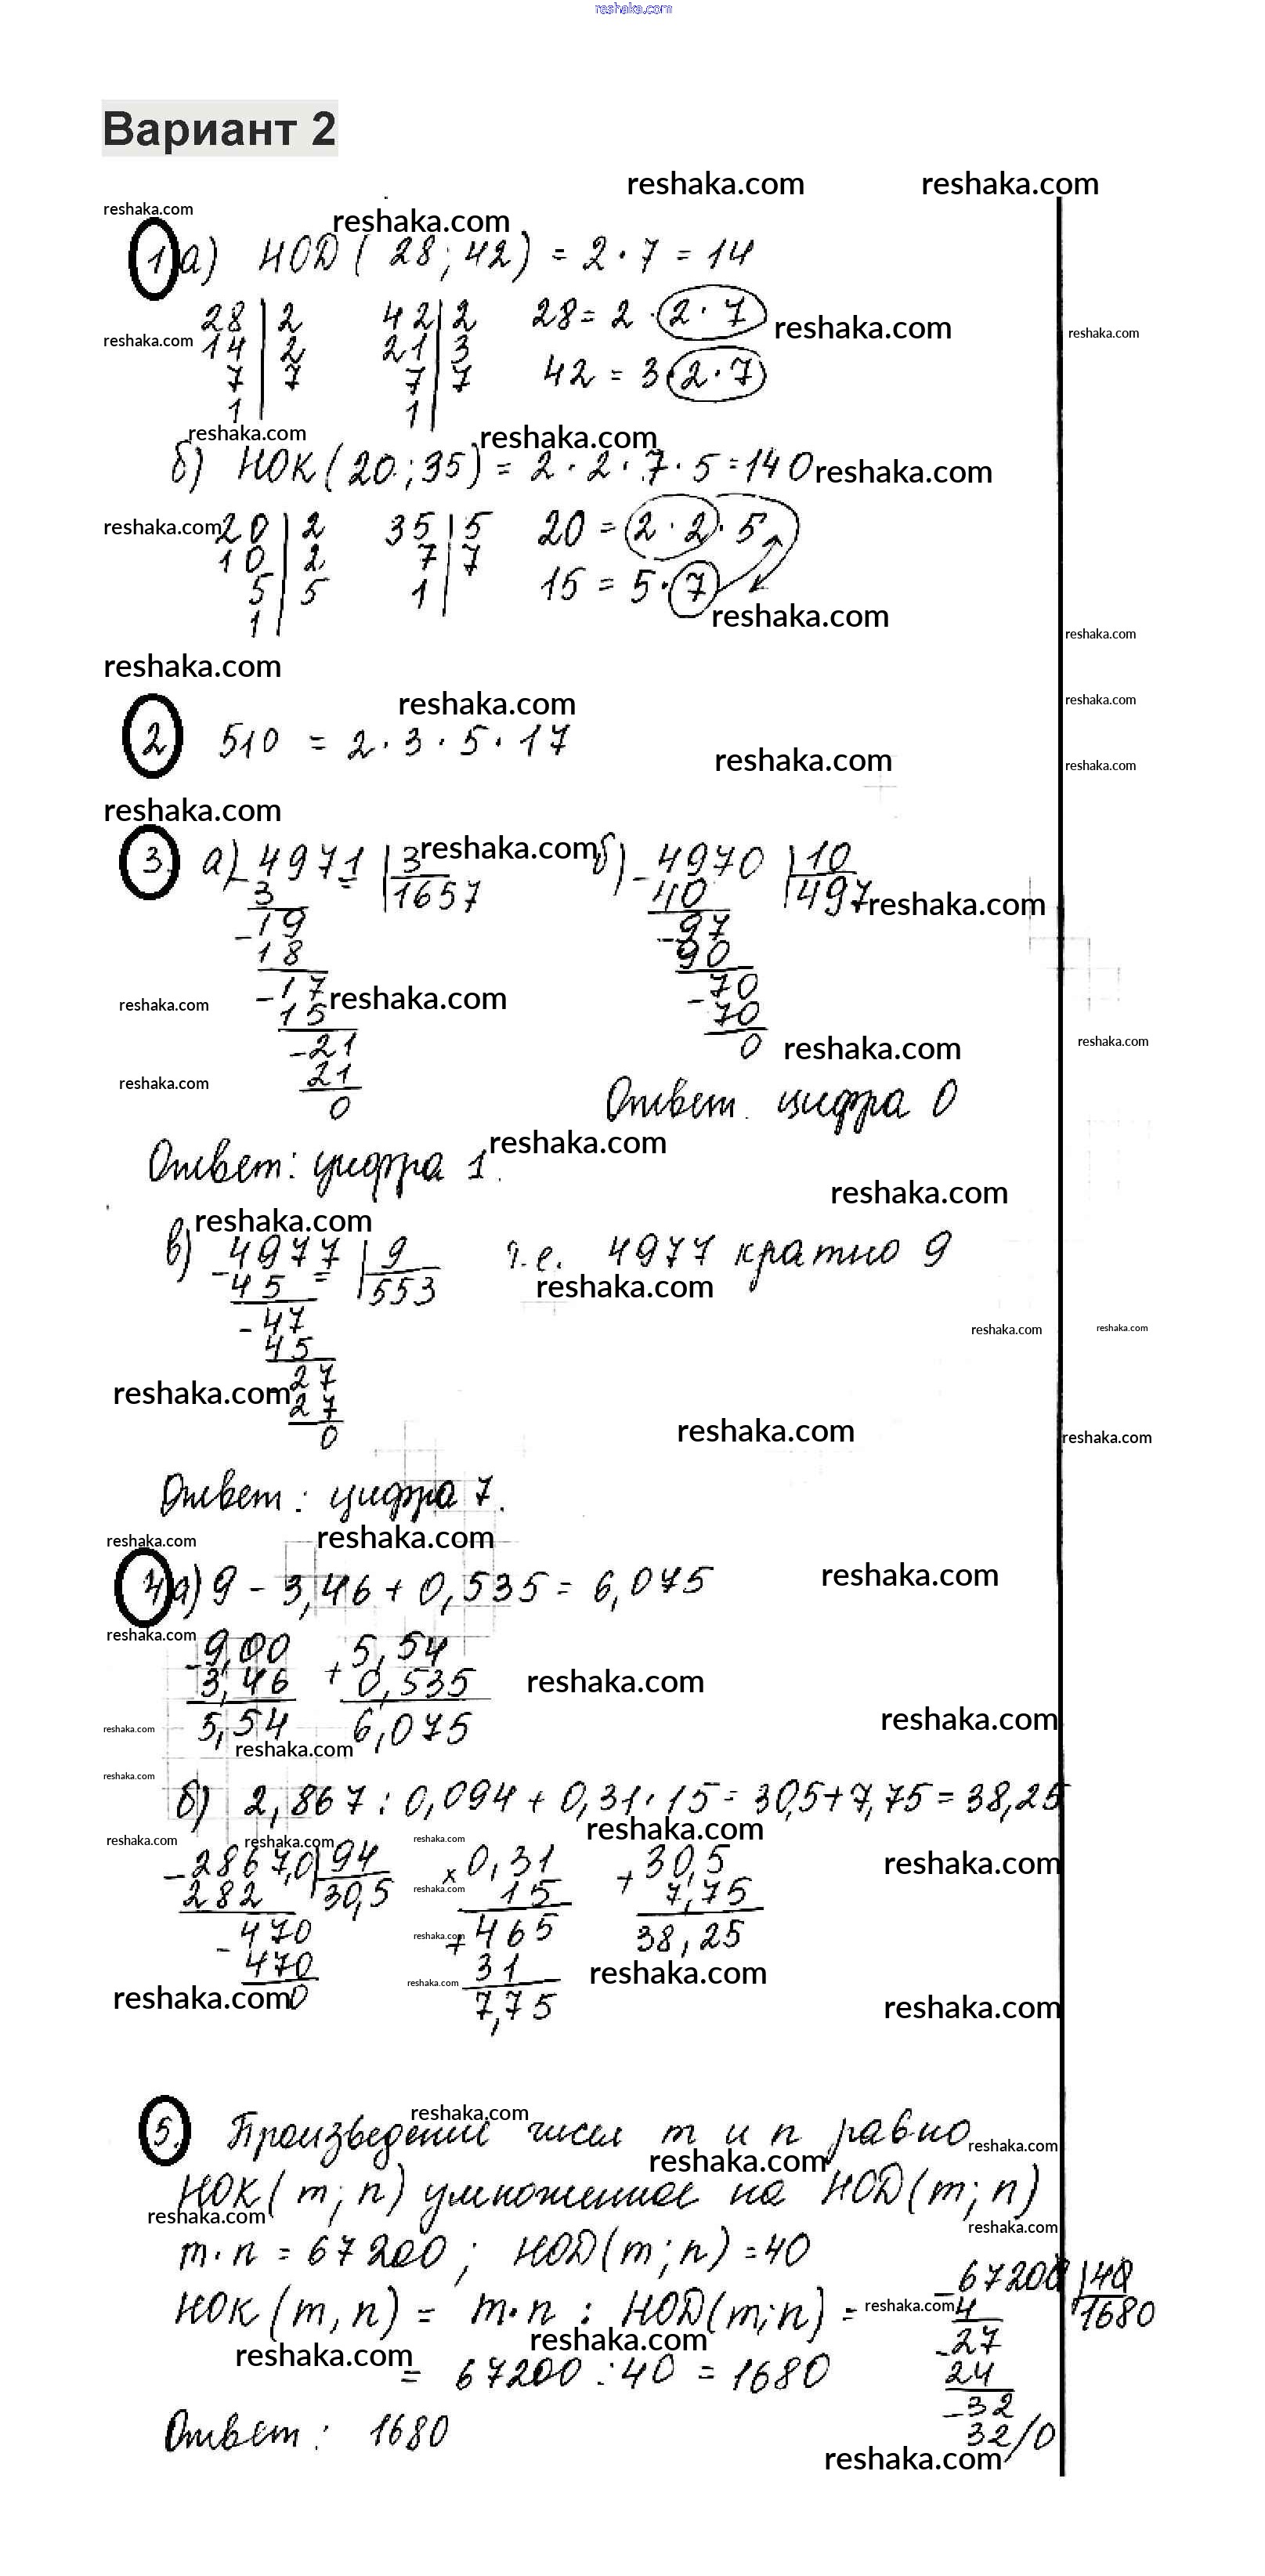 reshaka.com
Вариант 2
reshaka.com reshaka.com
reshaka.com reshaka.com
1 а) НОД ( 28 ; 42 ) = 2 · 7 = 14
28 | 2 42 | 2 28 = 2 · 2 · 7 reshaka.com reshaka.com
reshaka.com 14 | 2 21 | 3
7 | 7 7 | 7 42 = 3 · 2 · 7
1 | 1 |
reshaka.com reshaka.com
б) НОК ( 20 ; 35 ) = 2 · 2 · 7 · 5 = 140 reshaka.com
reshaka.com 20 | 2 35 | 5 20 = 2 · 2 · 5
10 | 2 7 | 7
5 | 5 1 | 15 = 5 · 7
1 | reshaka.com
reshaka.com
reshaka.com
reshaka.com reshaka.com
2 510 = 2 · 3 · 5 · 17
reshaka.com reshaka.com
reshaka.com
3 а) - 4971 | 3 reshaka.com б) - 4970 | 10
3 1657 40 497 reshaka.com
- 19 - 97
18 90
- 17 reshaka.com - 70
reshaka.com 15 70
- 21 0 reshaka.com reshaka.com
reshaka.com 21
0 Ответ. цифра 0
reshaka.com
Ответ: цифра 1.
reshaka.com
reshaka.com
в) - 4977 | 9 т.е. 4977 кратно 9
45 553 reshaka.com
- 47
45 reshaka.com reshaka.com
reshaka.com - 27
27
0 reshaka.com reshaka.com
Ответ: цифра 7.
reshaka.com reshaka.com
4 а) 9 - 3,46 + 0,535 = 6,075 reshaka.com
reshaka.com - 9,00 + 5,54
3,46 0,535 reshaka.com
reshaka.com 5,54 6,075 reshaka.com
reshaka.com
reshaka.com
б) 2,867 : 0,094 + 0,31 · 15 = 30,5 + 7,75 = 38,25
reshaka.com reshaka.com reshaka.com reshaka.com
- 2867,0 | 94 × 0,31 + 30,5 reshaka.com
282 30,5 reshaka.com 15 7,75
- 470 reshaka.com + 465 38,25
470 reshaka.com 31 reshaka.com
reshaka.com 0 7,75 reshaka.com
reshaka.com
5. Произведение чисел m и n равно reshaka.com
reshaka.com
НОК ( m ; n ) умноженное на НОД ( m ; n )
reshaka.com reshaka.com
m · n = 67200 ; НОД ( m ; n ) = 40
- 67200 | 40
НОК ( m , n ) = m · n : НОД ( m ; n ) = reshaka.com 4 1680
reshaka.com reshaka.com - 27
= 67200 : 40 = 1680 24
- 32
Ответ : 1680 32 / 0
reshaka.com